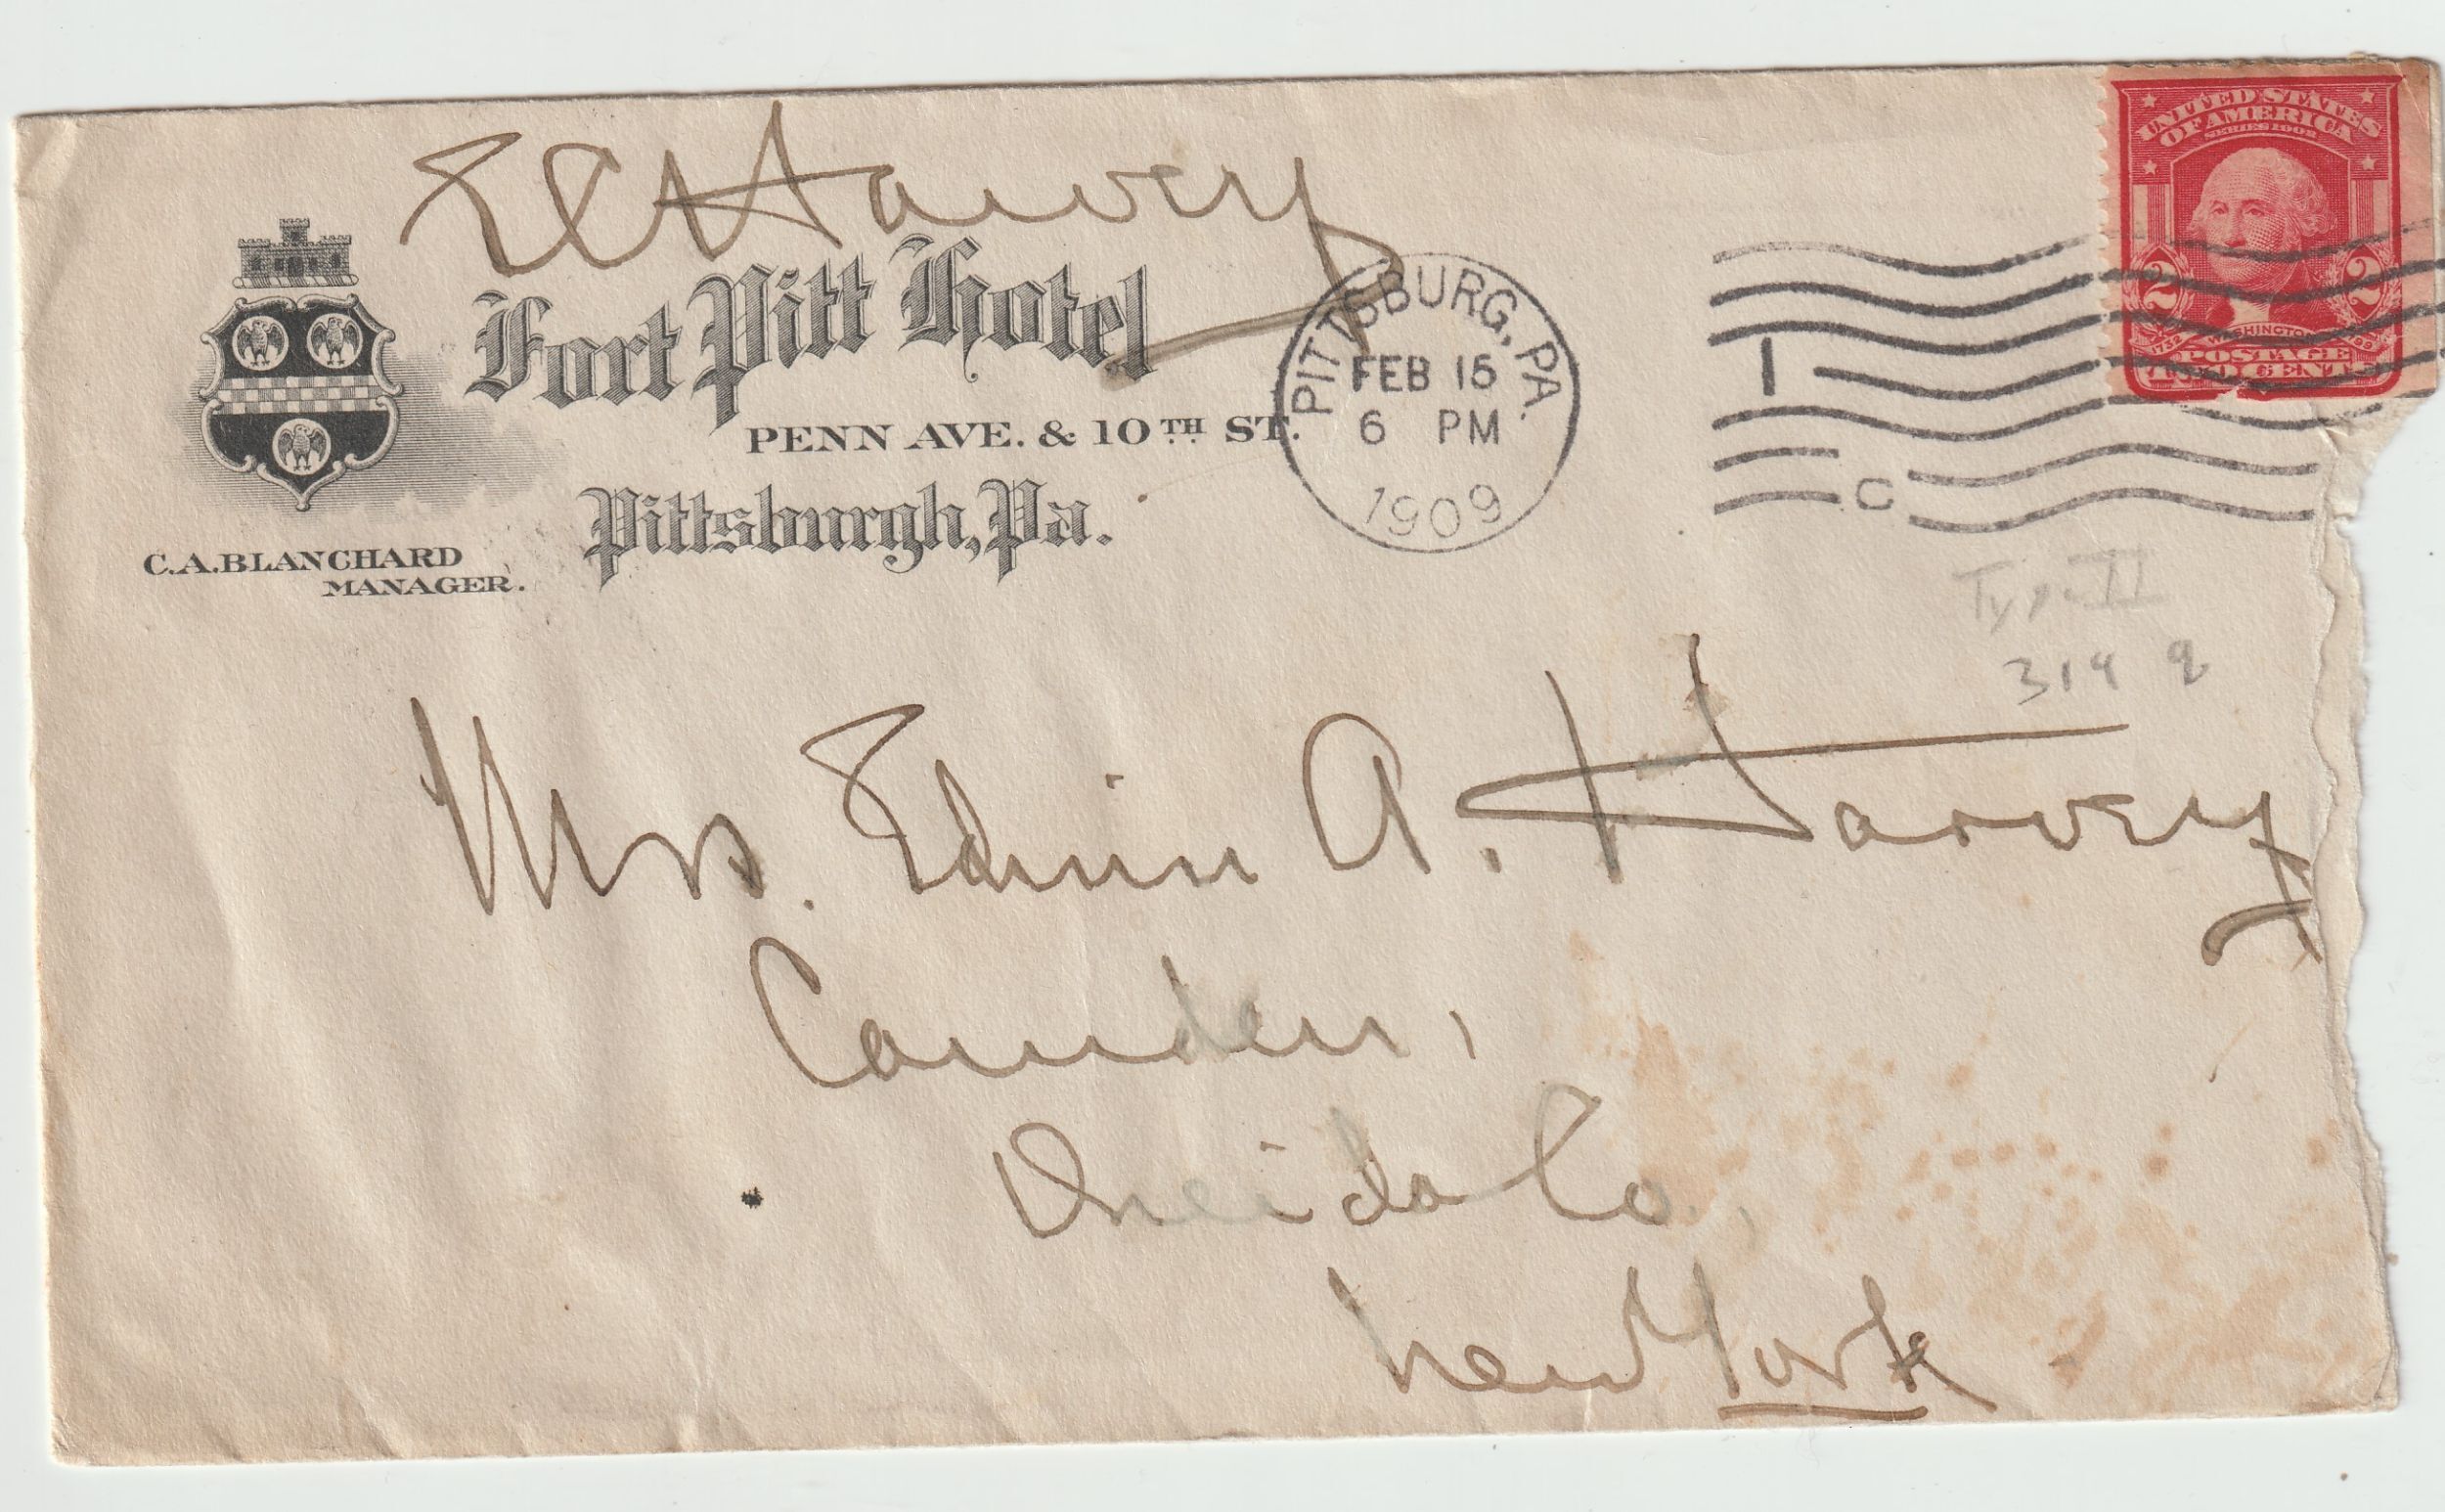 E A Harvey
Fort Pitt Hotel
PENN AVE. & 10TH ST.
Pittsburgh, Pa.
C.A.BLANCHARD
MANAGER.
PITTSBURG, PA.
FEB 15
6 PM
1909
1
C
UNITED STATES
OF AMERICA
SERIES 1902
2 2
1732 WASHINGTON 1799
POSTAGE
TWO CENTS
Type II
319 q
Mrs. Edwin A. Harvey
Camden,
Oneida Co.,
New York